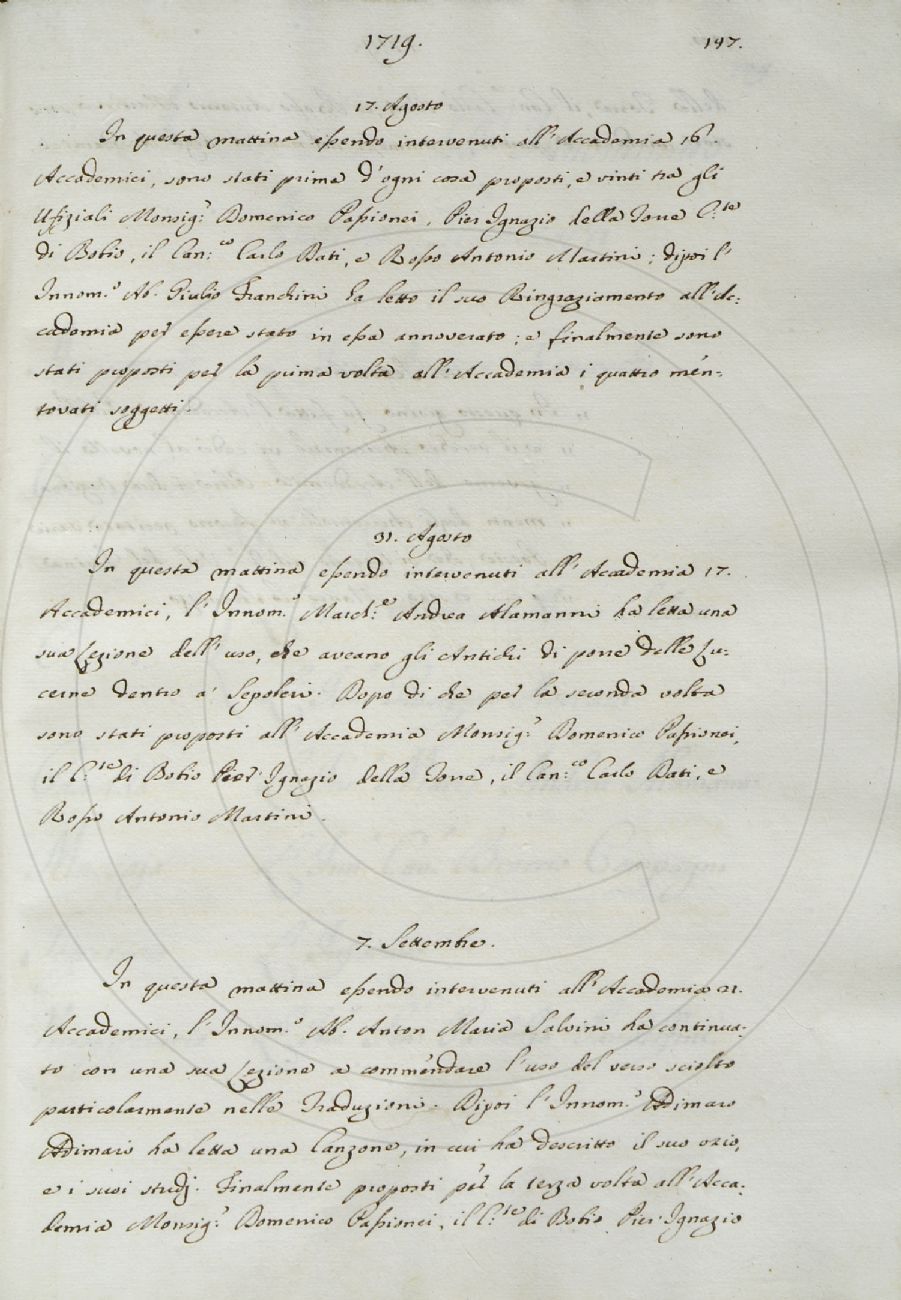 1719.
147.
17. Agosto
In questa mattina essendo intervenuti all'Accademia 16.
Accademici, sono stati prima d'ogni cosa proposti, e vinti tra gli
Ufiziali Monsig.r Domenico Passionei, Pier Ignazio della Torre C.te
di Bobio, il Can.co Carlo Dati, e Rosso Antonio Martini; dipoi l'
Innom.o Ab. Giulio Franchini ha letto il suo Ringraziamento all'Ac:
cademia per essere stato in essa annoverato; e finalmente sono
stati proposti per la prima volta all'Accademia i quattro men:
tovati soggetti.
31. Agosto
In questa mattina essendo intervenuti all'Accademia 17.
Accademici, l'Innom.o March.e Andrea Alamanni ha letta una
sua Lezione dell'uso, che aveano gli Antichi di porre delle Lu:
cerne dentro a' Sepolcri. Dopo di che per la seconda volta
sono stati proposti all'Accademia Monsig.r Domenico Passionei,
il C.te di Bobio Pier Ignazio della Torre, il Can.co Carlo Dati, e
Rosso Antonio Martini.
7. Settembre.
In questa mattina essendo intervenuti all'Accademia 21.
Accademici, l'Innom.o Ab. Anton Maria Salvini ha continua:
to con una sua Lezione a commendare l'uso del verso sciolto
particolarmente nelle Traduzioni. Dipoi l'Innom.o Adimaro
Adimari ha letta una Canzone, in cui ha descritto il suo ozio,
e i suoi studj. Finalmente proposti per la terza volta all'Acca:
demia Monsig.r Domenico Passionei, il C.te di Bobio Pier Ignazio